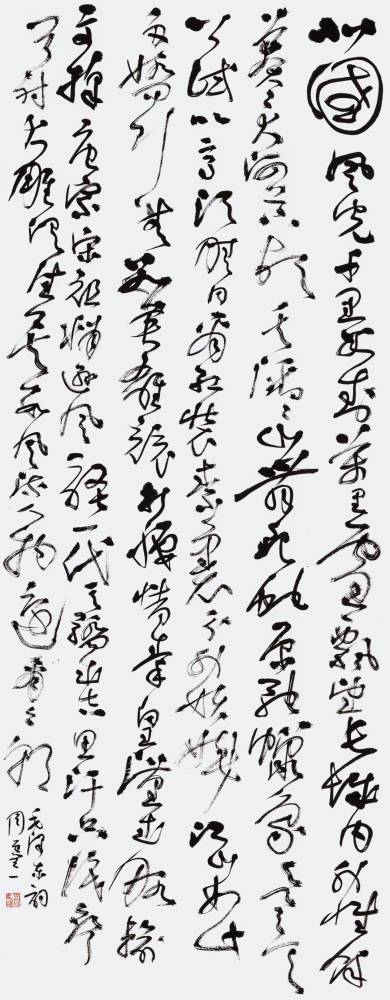 北國風光千里冰封萬里雪飄望長城内外惟餘
莽莽大河上下頓失滔滔山舞銀蛇原馳蠟象欲與天
公試比高須晴日看紅裝素裹分外妖嬈江山如此
多嬌引無數英雄競折腰惜秦皇漢武略輸
文採唐宗宋祖稍遜風騷一代天驕成吉思汗只識彎
弓射大雕俱往矣數風流人物還看今朝
毛澤東詞
周一